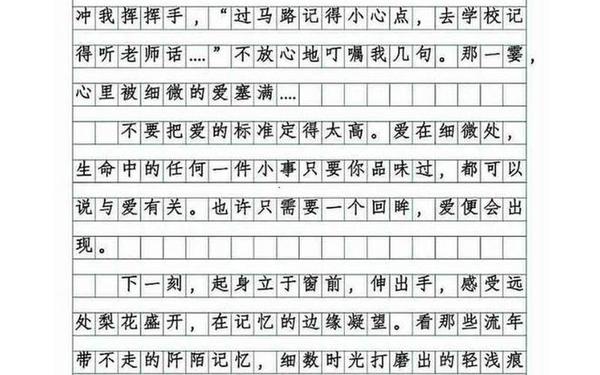 冲我挥挥手，“过马路记得小心点，去学校记
得听老师话....”不放心地叮嘱我几句。那一霎，
心里被细微的爱塞满....
不要把爱的标准定得太高。爱在细微处，
生命中的任何一件小事只要你品味过，都可以
说与爱有关。也许只需要一个回眸，爱便会出
现。
下一刻，起身立于窗前，伸出手，感受远
处梨花盛开，在记忆的边缘凝望。看那些流年
带不走的阡陌记忆，细数时光打磨出的轻浅痕